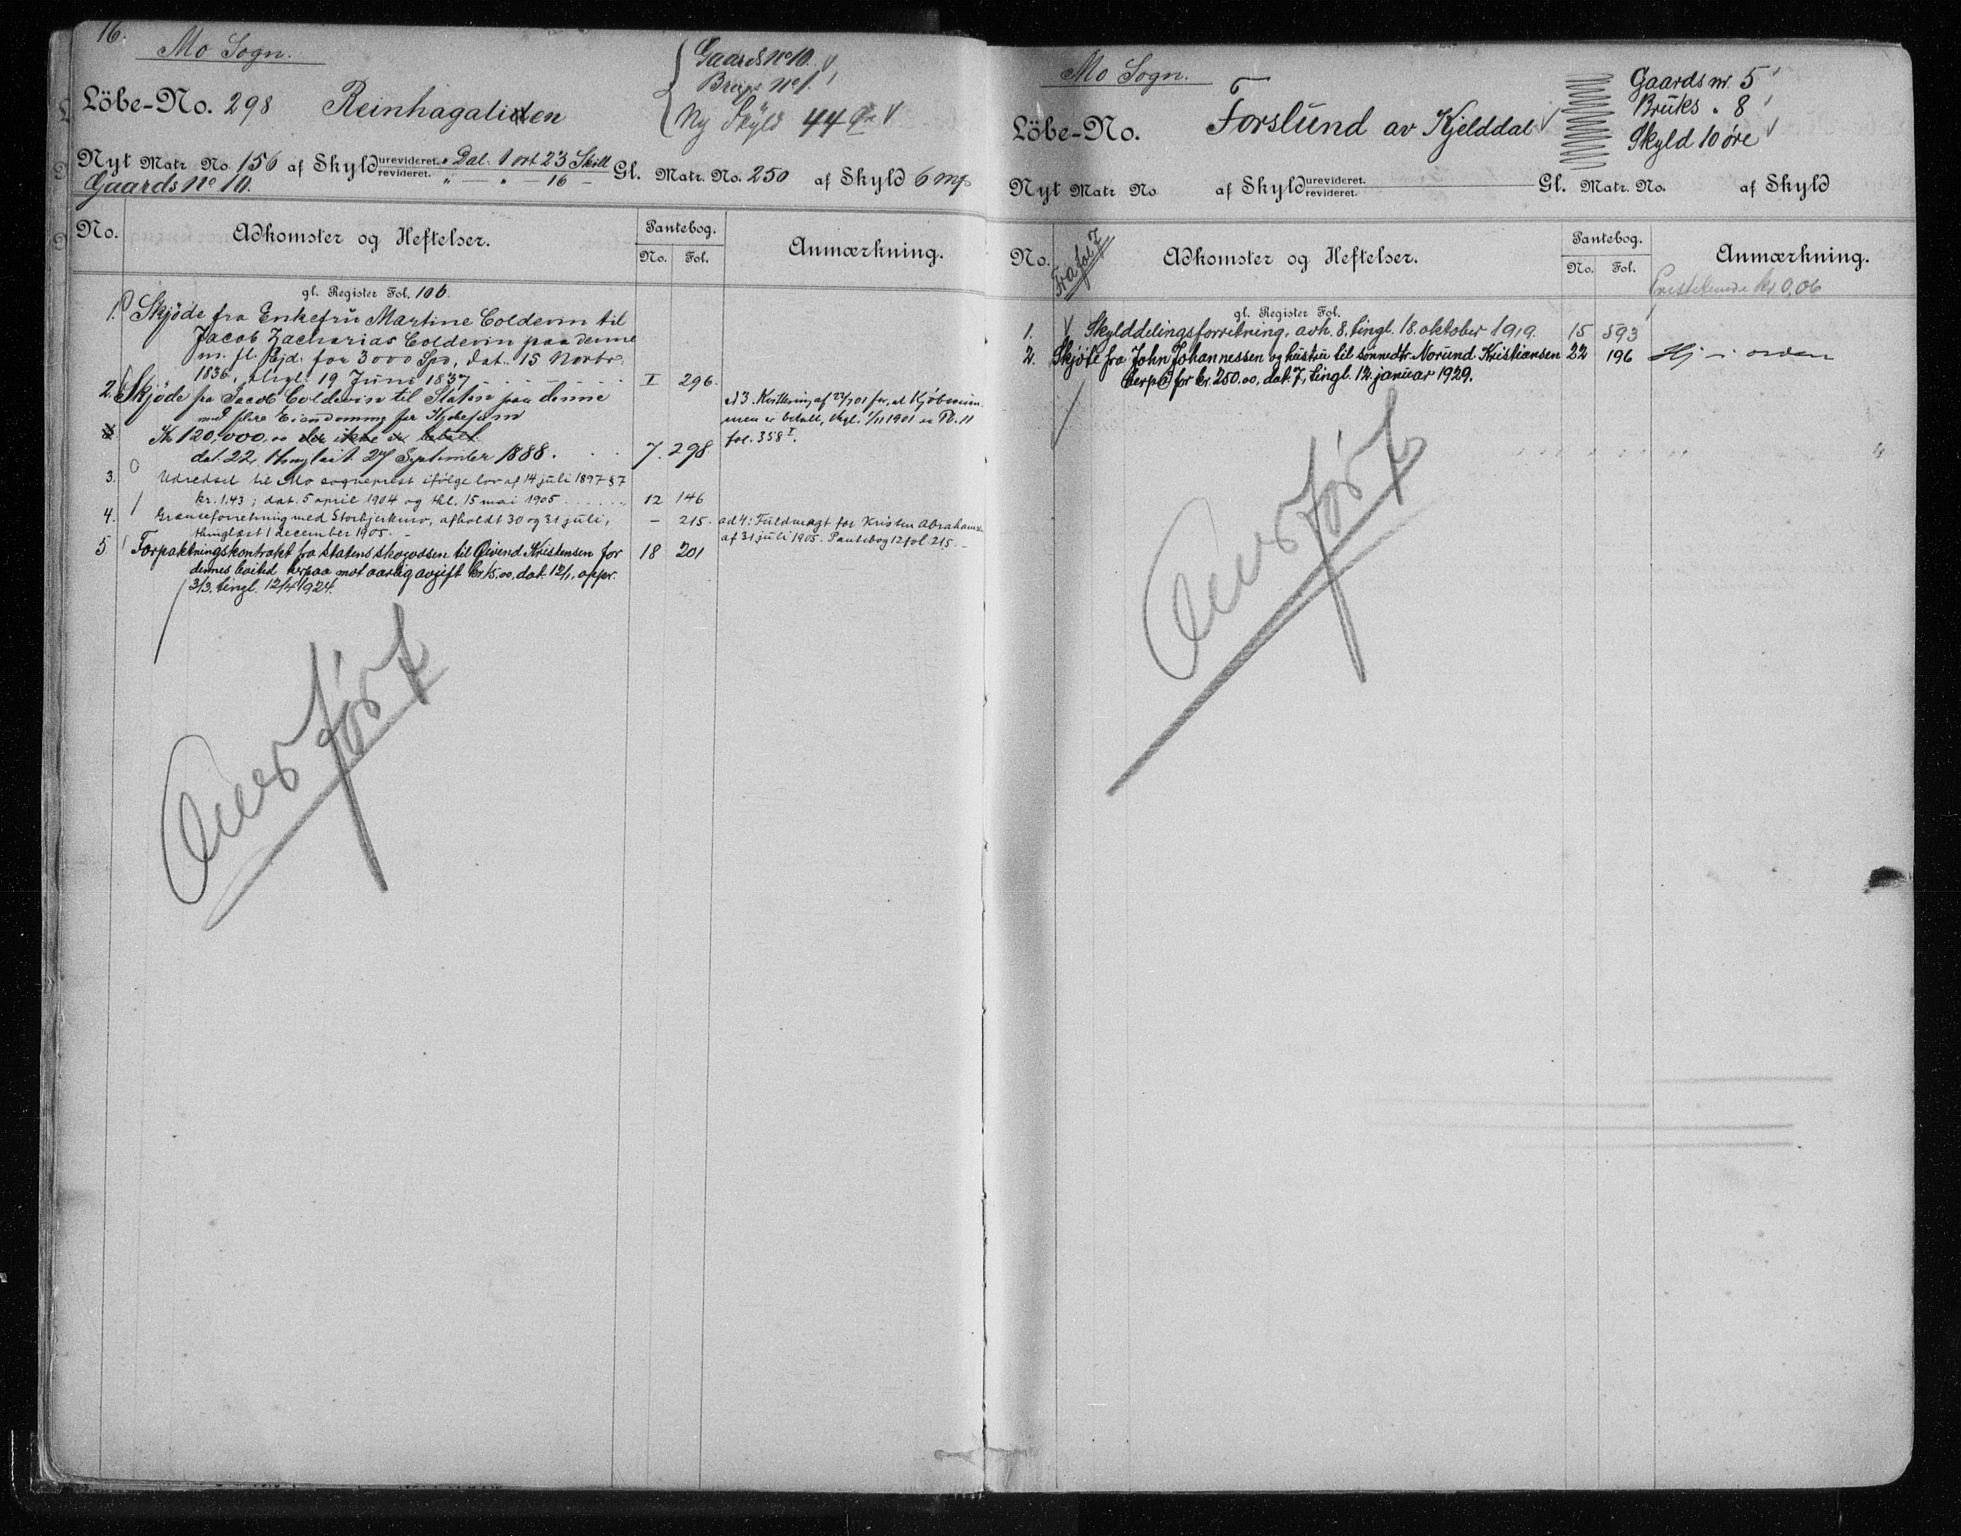 16.
Mo Sogn.
Gaards No 10. V
Brugs No 1.
Ny Skyld 44 Øre V
Löbe-No. 298 Reinhagaliden
Nyt Matr No. 156 af Skyld urevideret. " Dal. 1 ort 23 Skill Gl. Matr. No. 250 af Skyld 6 Mp
revideret. " — " — 16 —
Gaards No 10.
No. Adkomster og Heftelser. Pantebog. Anmærkning.
No. Fol.
gl. Register Fol. 106.
1. Skjöde fra Enkefru Martine Coldevin til
Jacob Zacharias Coldevin paa denne
m. fl. Ejd. for 3000 Spd, dat. 15 Novbr.
1836, thgl. 19 Juni 1837 I 296.
2. Skjöde fra Jacob Coldevin til Staten paa denne
med flere Eiendomme for Kjøbesum
Kr 120,000,00 der ikke er betalt.
dat. 22, thinglæst 27 September 1888. 7. 298
A 3 Kvittering af 22/7 01 for, at Kjöbesum
men er betalt, thgl. 1/11 1901 se Pb. 11
fol. 358 I.
3. Udredsel til Mo sogneprest ifölge lov af 14 juli 1897 § 7
kr. 1.43; dat. 5 april 1904 og thl. 15 mai 1905 12 146
4. Grænseforretning med Storbjerkmo, afholdt 30 og 31 juli, — 215.
thinglæst 1 december 1905. —
ad 4: Fuldmagt for Kristen Abrahams.
af 31 juli 1905. Pantebog 12 fol. 215. —
5 Forpaktningskontrakt fra statens skogvæsen til Øivind Kristensen for 18 201
dennes levetid herpaa mot aarlig avgift kr. 15.00, dat. 12/1, appr.
3/3. tingl. 12/4 1924.
Overført
Mo Sogn.
Gaards nr. 5
Bruks " 8
Skyld 10 öre V
Löbe-No. Forslund av Kjelddal V
Nyt Matr No af Skyld urevideret. Gl. Matr. No. af Skyld
revideret.
No. Fra fol. 7 Adkomster og Heftelser. Pantebog. Anmærkning.
No. Fol.
Prestetiende kr 0,06
gl. Register Fol.
1. V Skylddelingsforretning, avh. 8. tingl. 18. oktober 1919. 15 593
2. Skjöte fra John Johannessen og hustru til Norund Kristiansen 22 196 Hj — i orden
herpå for kr. 250.00, dat. 7, tingl. 12. januar 1929.
Overført